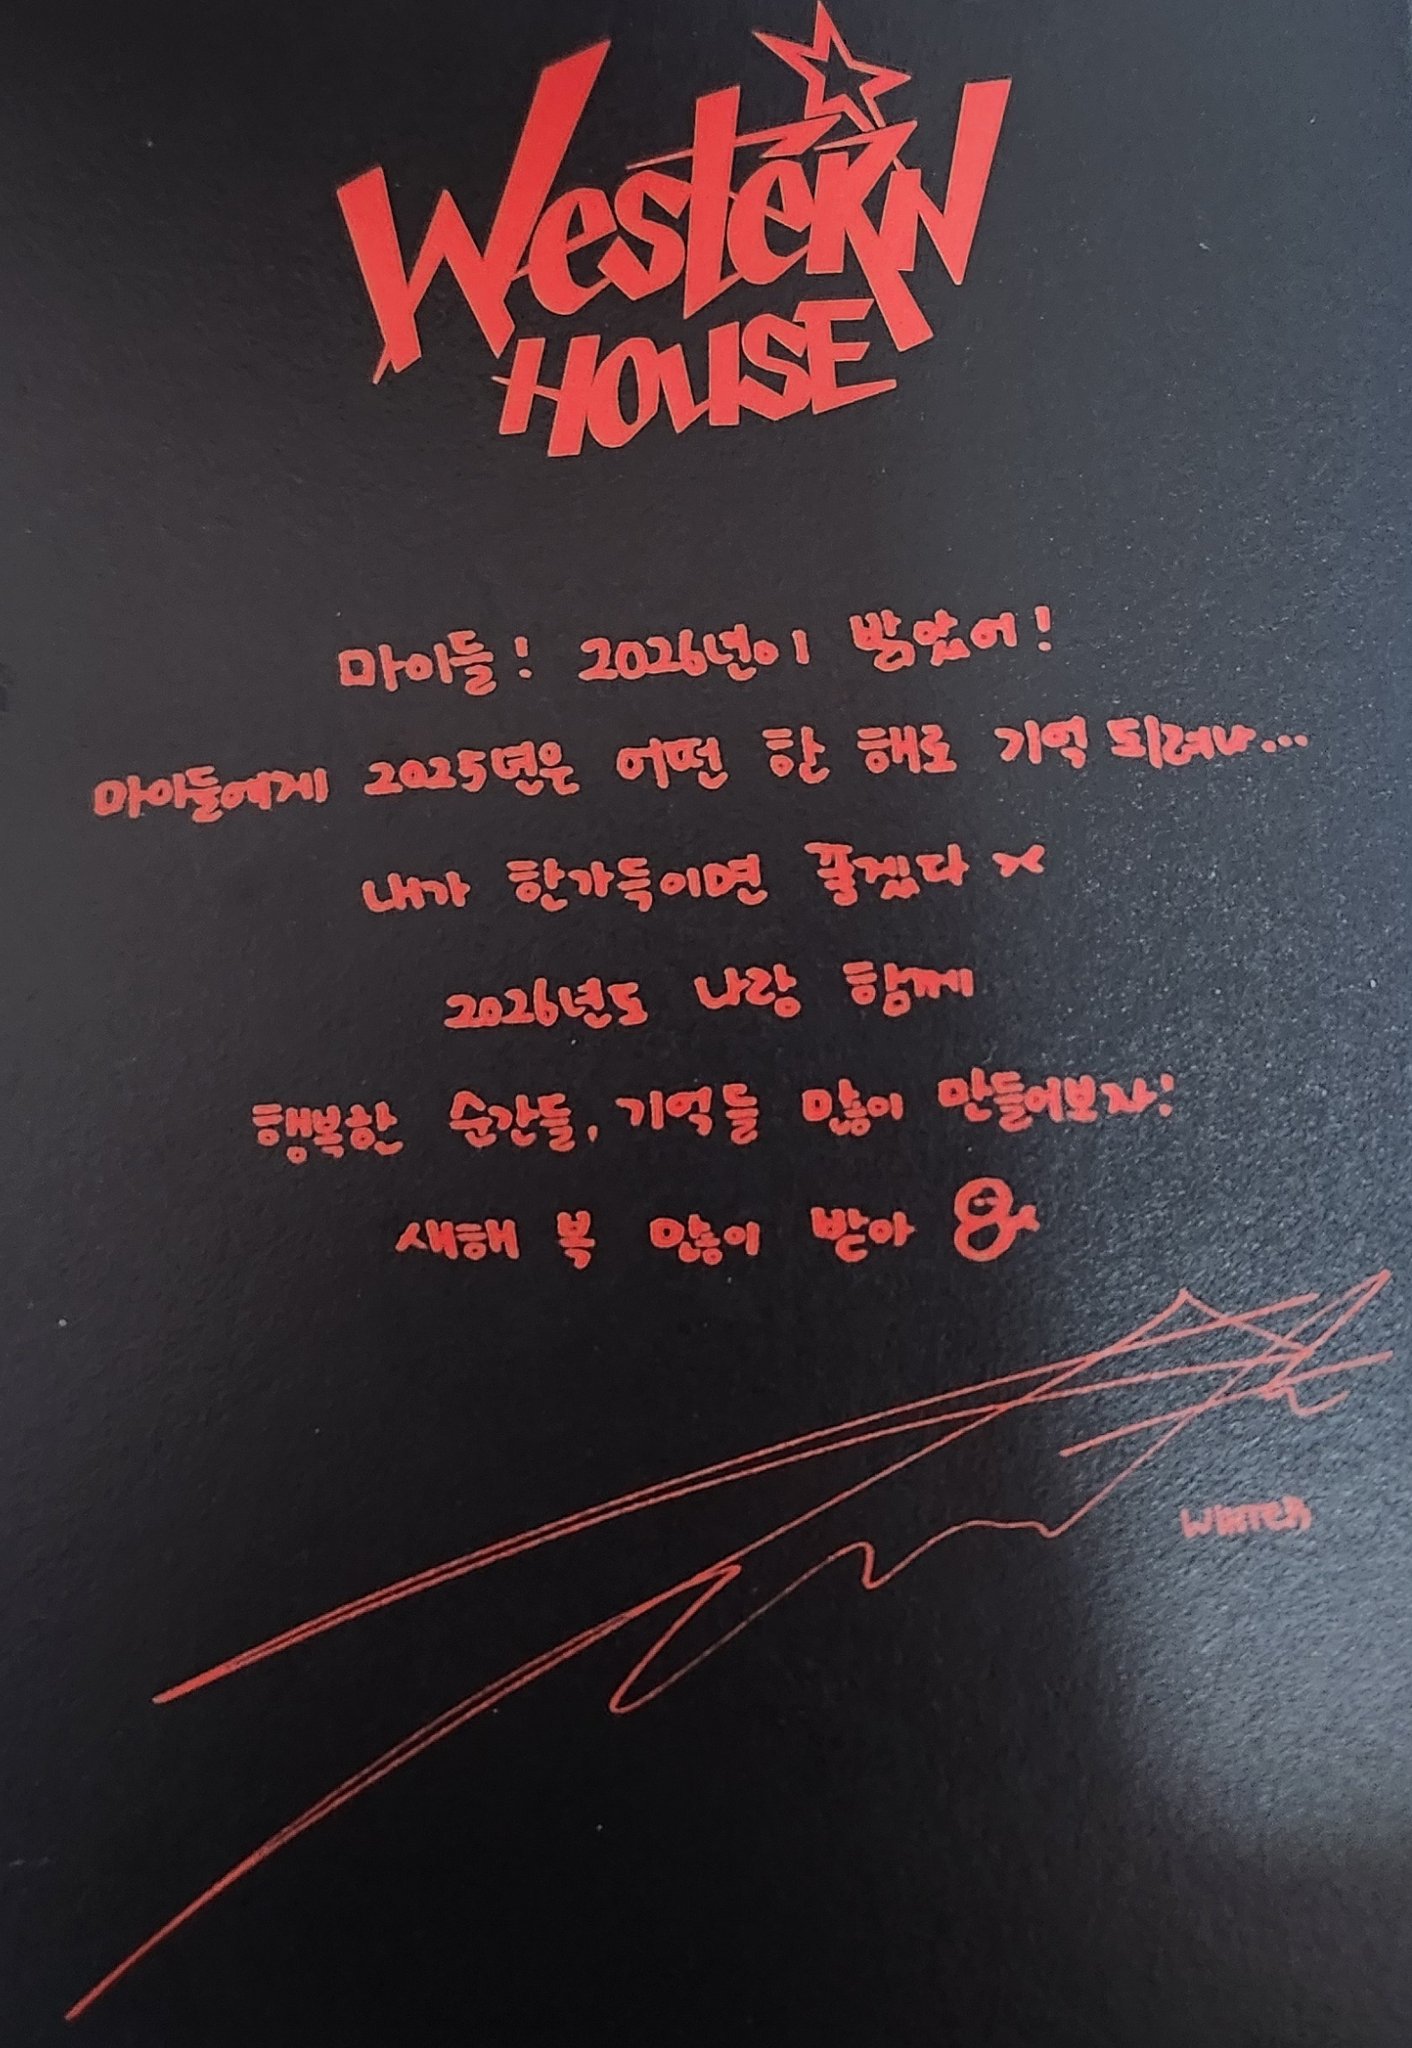 Western
House
마이들! 2026년이 밝았어!
마이들에게 2025년은 어떤 한 해로 기억 되려나...
내가 한가득이면 좋겠다
2026년도 나랑 함께
행복한 순간들, 기억들 많이 만들어보자!
새해 복 많이 받아
WINTER